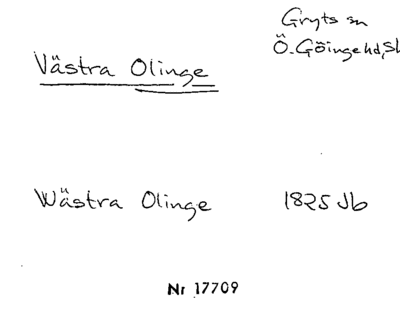 Gryts sn
Västra Olinge
Ö. Göinge hd, Sk
Wästra Olinge 1825 Jb
Nr 17709